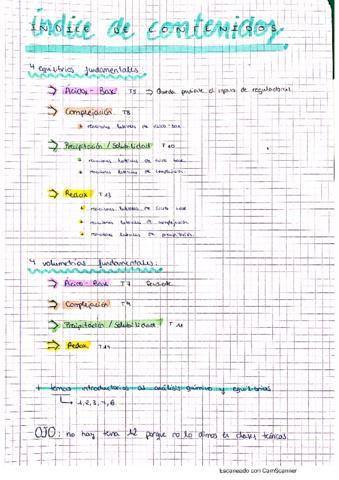 índice de contenidos
ÍNDICE DE CONTENIDOS
4 equilibrios fundamentales
→ Ácidos - Base T5 → Queda pendiente el repaso de reguladoras
→ Complejación T8
reacciones laterales de ácido-base
→ Precipitación / Solubilidad T10
reacciones laterales de ácido base
reacciones laterales de complejación
→ Redox T13
reacciones laterales de ácido base
reacciones laterales de complejación
reacciones laterales de precipitación
4 volumetrías fundamentales:
→ Ácido - Base T7
→ Complejación T9
→ Precipitación / Solubilidad T11
→ Redox T14
+ temas introductorios al análisis químico y equilibrios
1, 2, 3, 4, 6
OJO: no hay tema 12 porque no lo dimos en clases teóricas
Escaneado con CamScanner